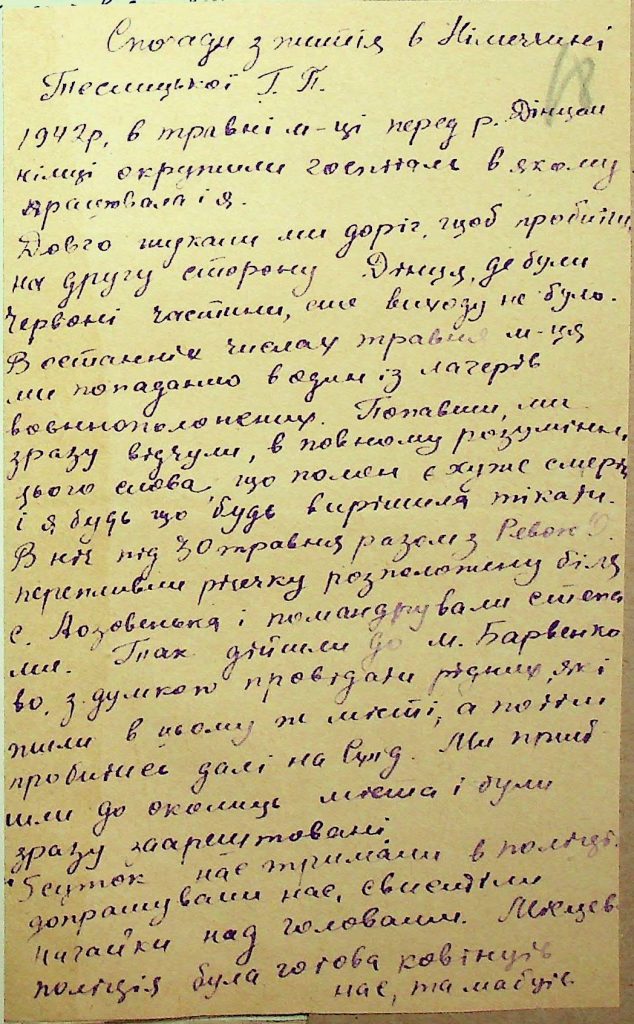 Спогади з життя в Німеччині
Теслицької Г. П.
18
1942р. в травні м-ці перед р. Дінцем
німці окружили госпіталь в якому
працювала і я.
Довго шукали ми доріг, щоб пробитись
на другу сторону Дінця, де були
Червоні частини, але виходу не було.
В останніх числах травня м-ця
ми попадаємо в один із лагерів
воєннополонених. Попавши, ми
зразу відчули, в повному розумінні
цього слова, що полон є хуже смерті
і я будь що будь вирішила тікати.
В ніч під 30 травня разом з
перепливши річечку розположену біля
с. Лозовенька і помандрували степа
ми. Так дійшли до м. Барвенко
во, з думкою провідати рідних, які
жили в цьому ж місті, а потім
пробитись далі на Схід. Ми прий
шли до околиць міста і були
зразу заарештовані.
5 суток нас тримали в поліції,
допрашували нас, свистіли
нагайки над головами. Місцева
поліція була готова
нас, та мабуть